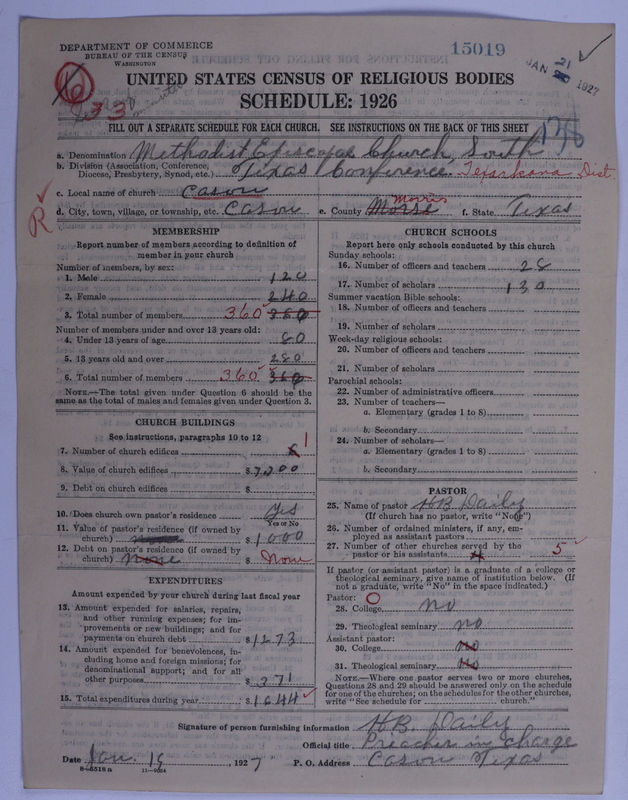 DEPARTMENT OF COMMERCE
BUREAU OF THE CENSUS
WASHINGTON
15019
JAN 21 1927
33
UNITED STATES CENSUS OF RELIGIOUS BODIES
SCHEDULE: 1926
FILL OUT A SEPARATE SCHEDULE FOR EACH CHURCH. SEE INSTRUCTIONS ON THE BACK OF THIS SHEET
a. Denomination Methodist Episcopal Church, South
b. Division (Association, Conference, Diocese, Presbytery, Synod, etc.) Texas Conference. Texarkana Dist.
c. Local name of church Cason
R
d. City, town, village, or township, etc. Cason e. County Morse Morris f. State Texas
MEMBERSHIP
Report number of members according to definition of
member in your church
Number of members, by sex:
1. Male 120
2. Female 240
3. Total number of members 360 360
Number of members under and over 13 years old:
4. Under 13 years of age 80
5. 13 years old and over 280
6. Total number of members 360 360
NOTE.—The total given under Question 6 should be the
same as the total of males and females given under Question 3.
CHURCH BUILDINGS
See instructions, paragraphs 10 to 12
7. Number of church edifices 1
8. Value of church edifices $7200
9. Debt on church edifices $
10. Does church own pastor's residence Yes
Yes or No
11. Value of pastor's residence (if owned by
church) $1000
12. Debt on pastor's residence (if owned by
church) none $ None
EXPENDITURES
Amount expended by your church during last fiscal year
13. Amount expended for salaries, repairs,
and other running expenses; for im-
provements or new buildings; and for
payments on church debt $1273
14. Amount expended for benevolences, in-
cluding home and foreign missions; for
denominational support; and for all
other purposes $371
15. Total expenditures during year $1644
CHURCH SCHOOLS
Report here only schools conducted by this church
Sunday schools:
16. Number of officers and teachers 28
17. Number of scholars 130
Summer vacation Bible schools:
18. Number of officers and teachers
19. Number of scholars
Week-day religious schools:
20. Number of officers and teachers
21. Number of scholars
Parochial schools:
22. Number of administrative officers
23. Number of teachers—
a. Elementary (grades 1 to 8)
b. Secondary
24. Number of scholars—
a. Elementary (grades 1 to 8)
b. Secondary
PASTOR
25. Name of pastor H B Daily
(If church has no pastor, write "None")
26. Number of ordained ministers, if any, em-
ployed as assistant pastors
27. Number of other churches served by the
pastor or his assistants 4 5
If pastor (or assistant pastor) is a graduate of a college or
theological seminary, give name of institution below. (If
not a graduate, write "No" in the space indicated.)
Pastor: O
28. College no
29. Theological seminary no
Assistant pastor:
30. College no
31. Theological seminary no
NOTE.—Where one pastor serves two or more churches,
Questions 28 and 29 should be answered only on the schedule
for one of the churches; on the schedules for the other churches,
write "See schedule for church."
Signature of person furnishing information H.B. Daily
Official title Preacher in charge
Date Jan. 19, 1927 P. O. Address Cason Texas
8-5518 a